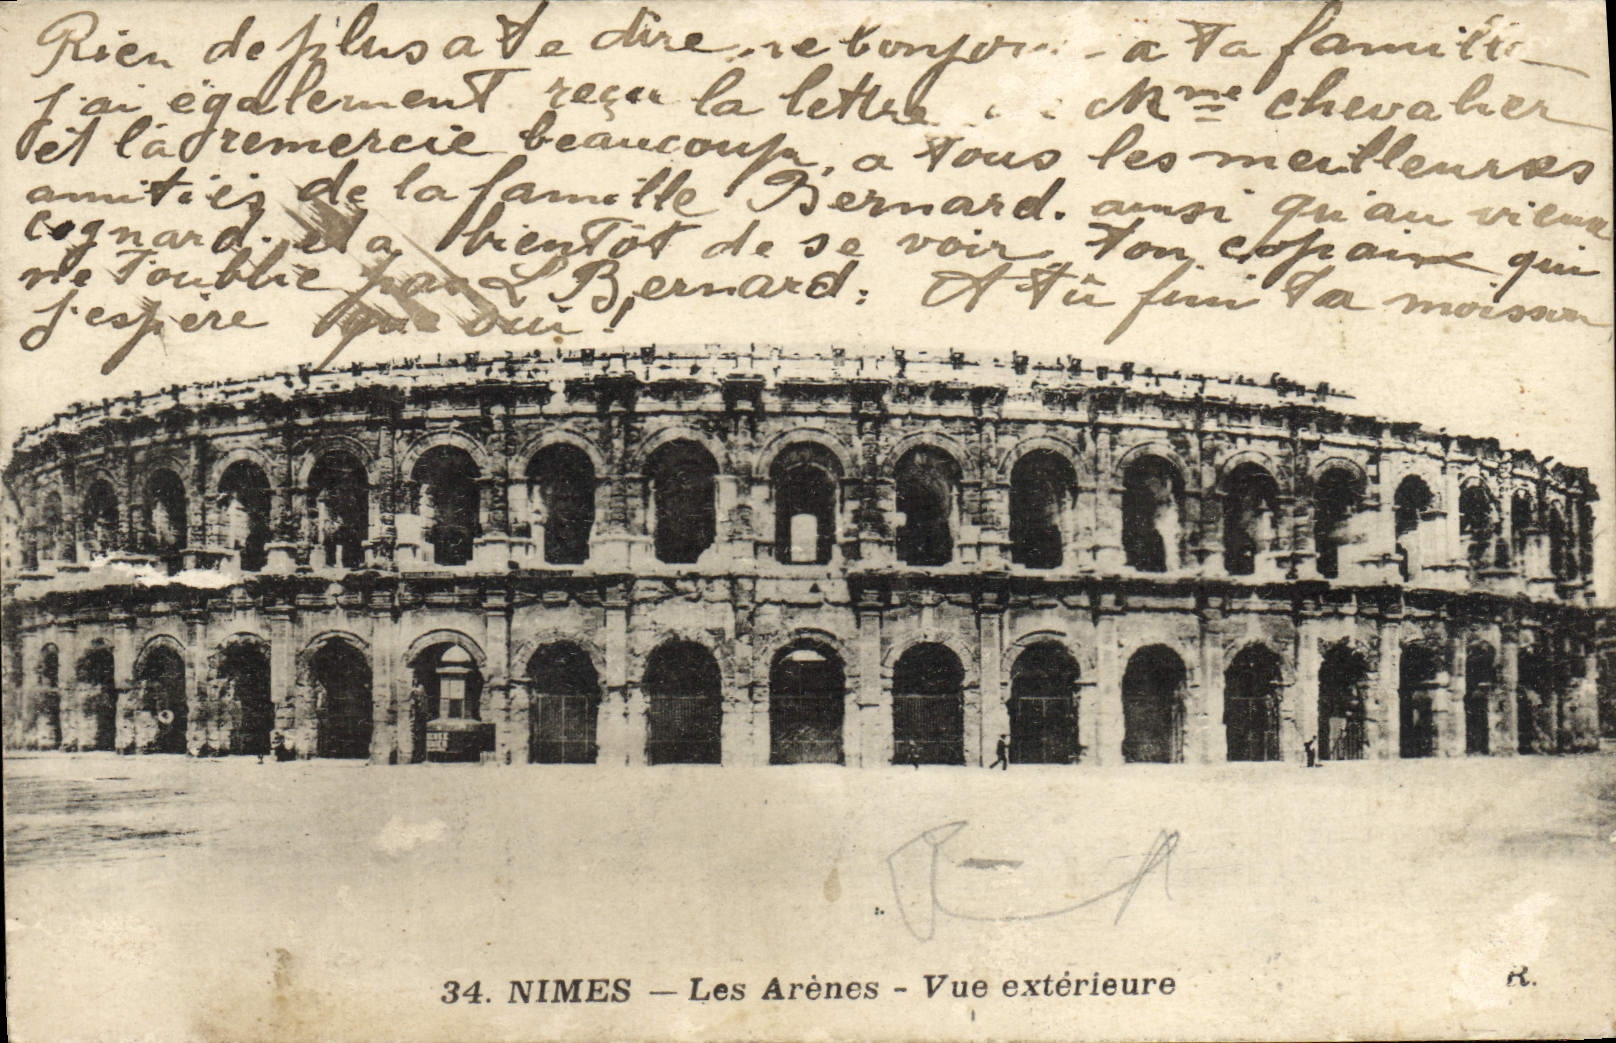 Rien de plus a te dire bonjour a ta famille
j'ai également reçu la lettre Mme chevalier
et la remercie beaucoup, a tous les meilleures
amitiés de la famille Bernard. ainsi qu'au vieux
cognard. et a bientôt de se voir ton copain qui
ne t'oublie pas L Bernard. A tû fini ta moisson
j'espère que oui!
34. NIMES — Les Arènes - Vue extérieure
R.